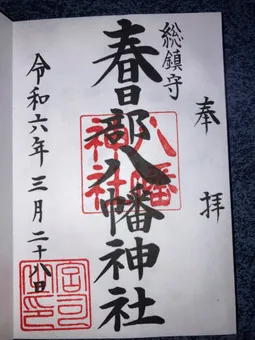 奉拝
総鎮守
春日部八幡神社
八幡神社
令和六年三月二十八日